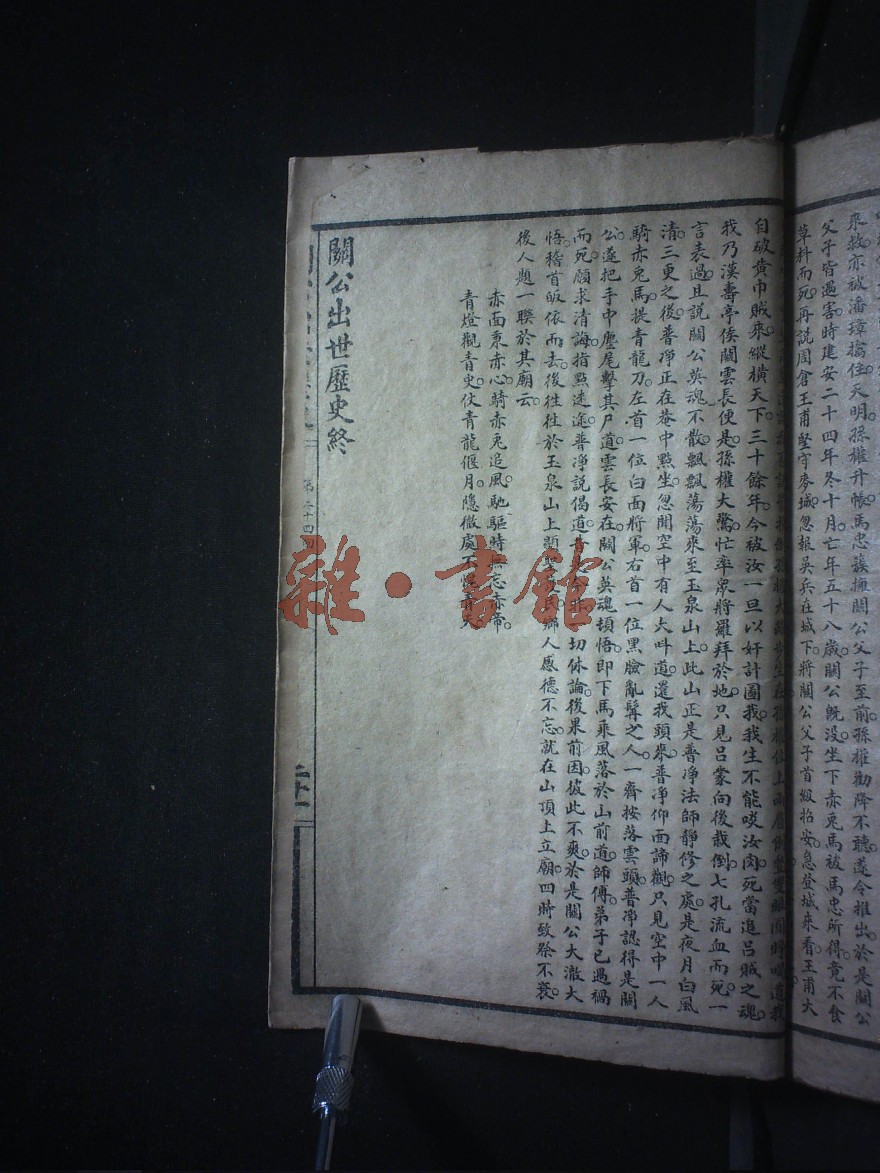 來救亦被潘璋擒住天明孫權升帳馬忠簇擁關公父子至前孫權勸降不聽遂令推出於是關公
父子皆遇害時建安二十四年冬十月亡年五十八歲關公既沒坐下赤兔馬被馬忠所得竟不食
草料而死再說周倉王甫堅守麥城忽報吳兵在城下將關公父子首級招安急登城來看王甫大
自破黃巾賊來縱橫天下三十餘年今被汝一旦以奸計圖我我生不能啖汝肉死當追呂賊之魂
我乃漢壽亭侯關雲長便是孫權大驚忙率眾將羅拜於地只見呂蒙向後栽倒七孔流血而死一
言表過且說關公英魂不散飄飄蕩蕩來至玉泉山上此山正是普淨法師靜修之處是夜月白風
清三更之後普淨正在菴中點坐忽聞空中有人大呌道還我頭來普淨仰面諦觀只見空中一人
騎赤兔馬提青龍刀左首一位白面將軍右首一位黑臉亂髯之人一齊按落雲頭普淨認得是關
公遂把手中麈尾擊其戶道雲長安在關公英魂頓悟即下馬乘風落於山前道師傅弟子已遇禍
而死願求清誨指點迷途普淨說偈道昔非今是一切休論後果前因彼此不爽於是關公大澈大
悟稽首皈依而去後往往於玉泉山上顯聖護民鄉人感德不忘就在山頂上立廟四時致祭不衰
後人題一聯於其廟云
赤面秉赤心騎赤兔追風馳驅時無忘赤帝
青燈觀青史仗青龍偃月隱微處不愧青天
關公出世歷史終
第二十四回
二十一
雜·書館